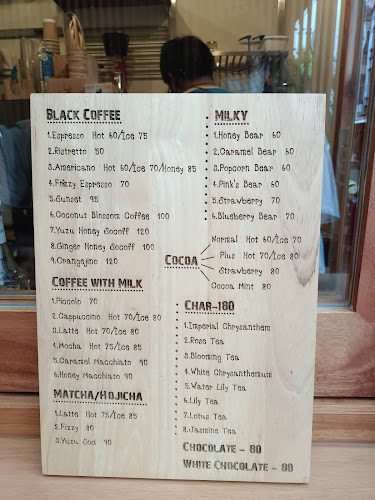 BLACK COFFEE
1.Espresso Hot 60/Ice 75
2.Ristretto 50
3.Americano Hot 60/Ice 70/Honey 85
4.Frizzy Espresso 70
5.Sunset 95
6.Coconut Blossom Coffee 100
7.Yuzu Honey Socoff 120
8.Ginger Honey Socoff 100
9.Orangajino 120
COFFEE WITH MILK
1.Piccolo 70
2.Cappuccino Hot 70/Ice 80
3.Latte Hot 70/Ice 80
4.Mocha Hot 75/Ice 85
5.Caramel Macchiato 90
6.Honey Macchiato 90
MATCHA/HOJICHA
1.Latte Hot 75/Ice 85
2.Fizzy 80
3.Yuzu Sod 90
MILKY
1.Honey Bear 60
2.Caramel Bear 60
3.Popcorn Bear 60
4.Pink's Bear 60
5.Strawberry 70
6.Blueberry Bear 70
COCOA
Normal Hot 60/Ice 70
Plus Hot 70/Ice 80
Strawberry 80
Cocoa Mint 80
CHAR-180
1.Imperial Chrysanthem
2.Rose Tea
3.Blooming Tea
4.White Chrysanthemum
5.Water Lily Tea
6.Lily Tea
7.Lotus Tea
8.Jasmine Tea
CHOCOLATE - 80
WHITE CHOCOLATE - 80